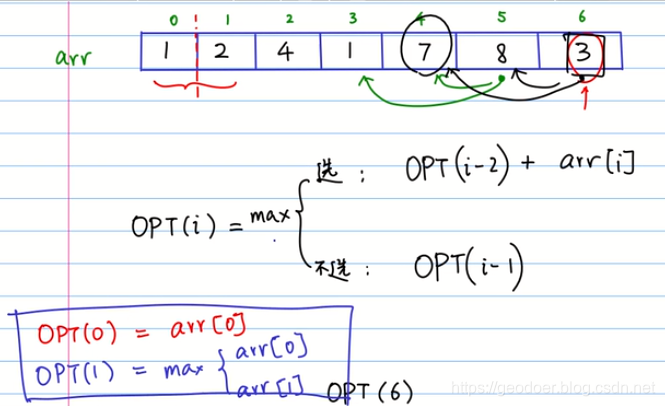 0 1 2 3 4 5 6
arr 1 2 4 1 7 8 3
选: OPT(i-2) + arr[i]
OPT(i) = max
不选: OPT(i-1)
OPT(0) = arr[0]
OPT(1) = max { arr[0]
arr[1]
OPT(6)
https://geodoer.blog.csdn.net